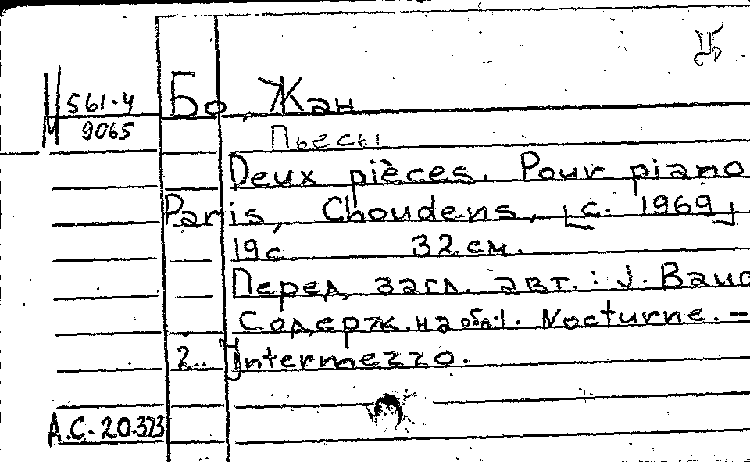 М 561-4
9065
Бо, Жан
Пьесы
Deux pièces. Pour piano
Paris, Choudens, [c. 1969]
19 с. 32 см.
Перед загл. авт.: J. Baud
Содерж. на обл: 1. Nocturne. –
2. Intermezzo.
А.С.-20.373